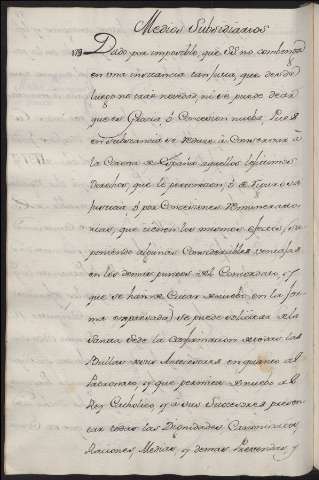 Medios Subsidiarios
179 Dado por imposible, que SS. no combenga
en una instancia tan justa, que desde
luego no trae novedad, ni se puede decir
que es Gracia, ó Concesion nueba, pues
en substancia se reduce à Conservar à
la Corona de España aquellos lexitimos
derechos, que le pertenecen, ò de rigurosa
Justicia ò por Concesiones remunerato
rias, que tienen los mismos efectos, su
poniendo algunas Considerables ventajas
en los demas puntos del Concordato, (y
que se han de Curar de nuebo, en la for
ma expresada) se puede solicitar de la
Santa Sede la Confirmacion de todas las
Bullas de sus Antecesores en quanto al
Patronato, y que permita de nuebo al
Rey Catholico, y à sus Successores presen
tar todas las Dignidades, Canonicatos,
Raciones, Medias, y demas Prevendas, y